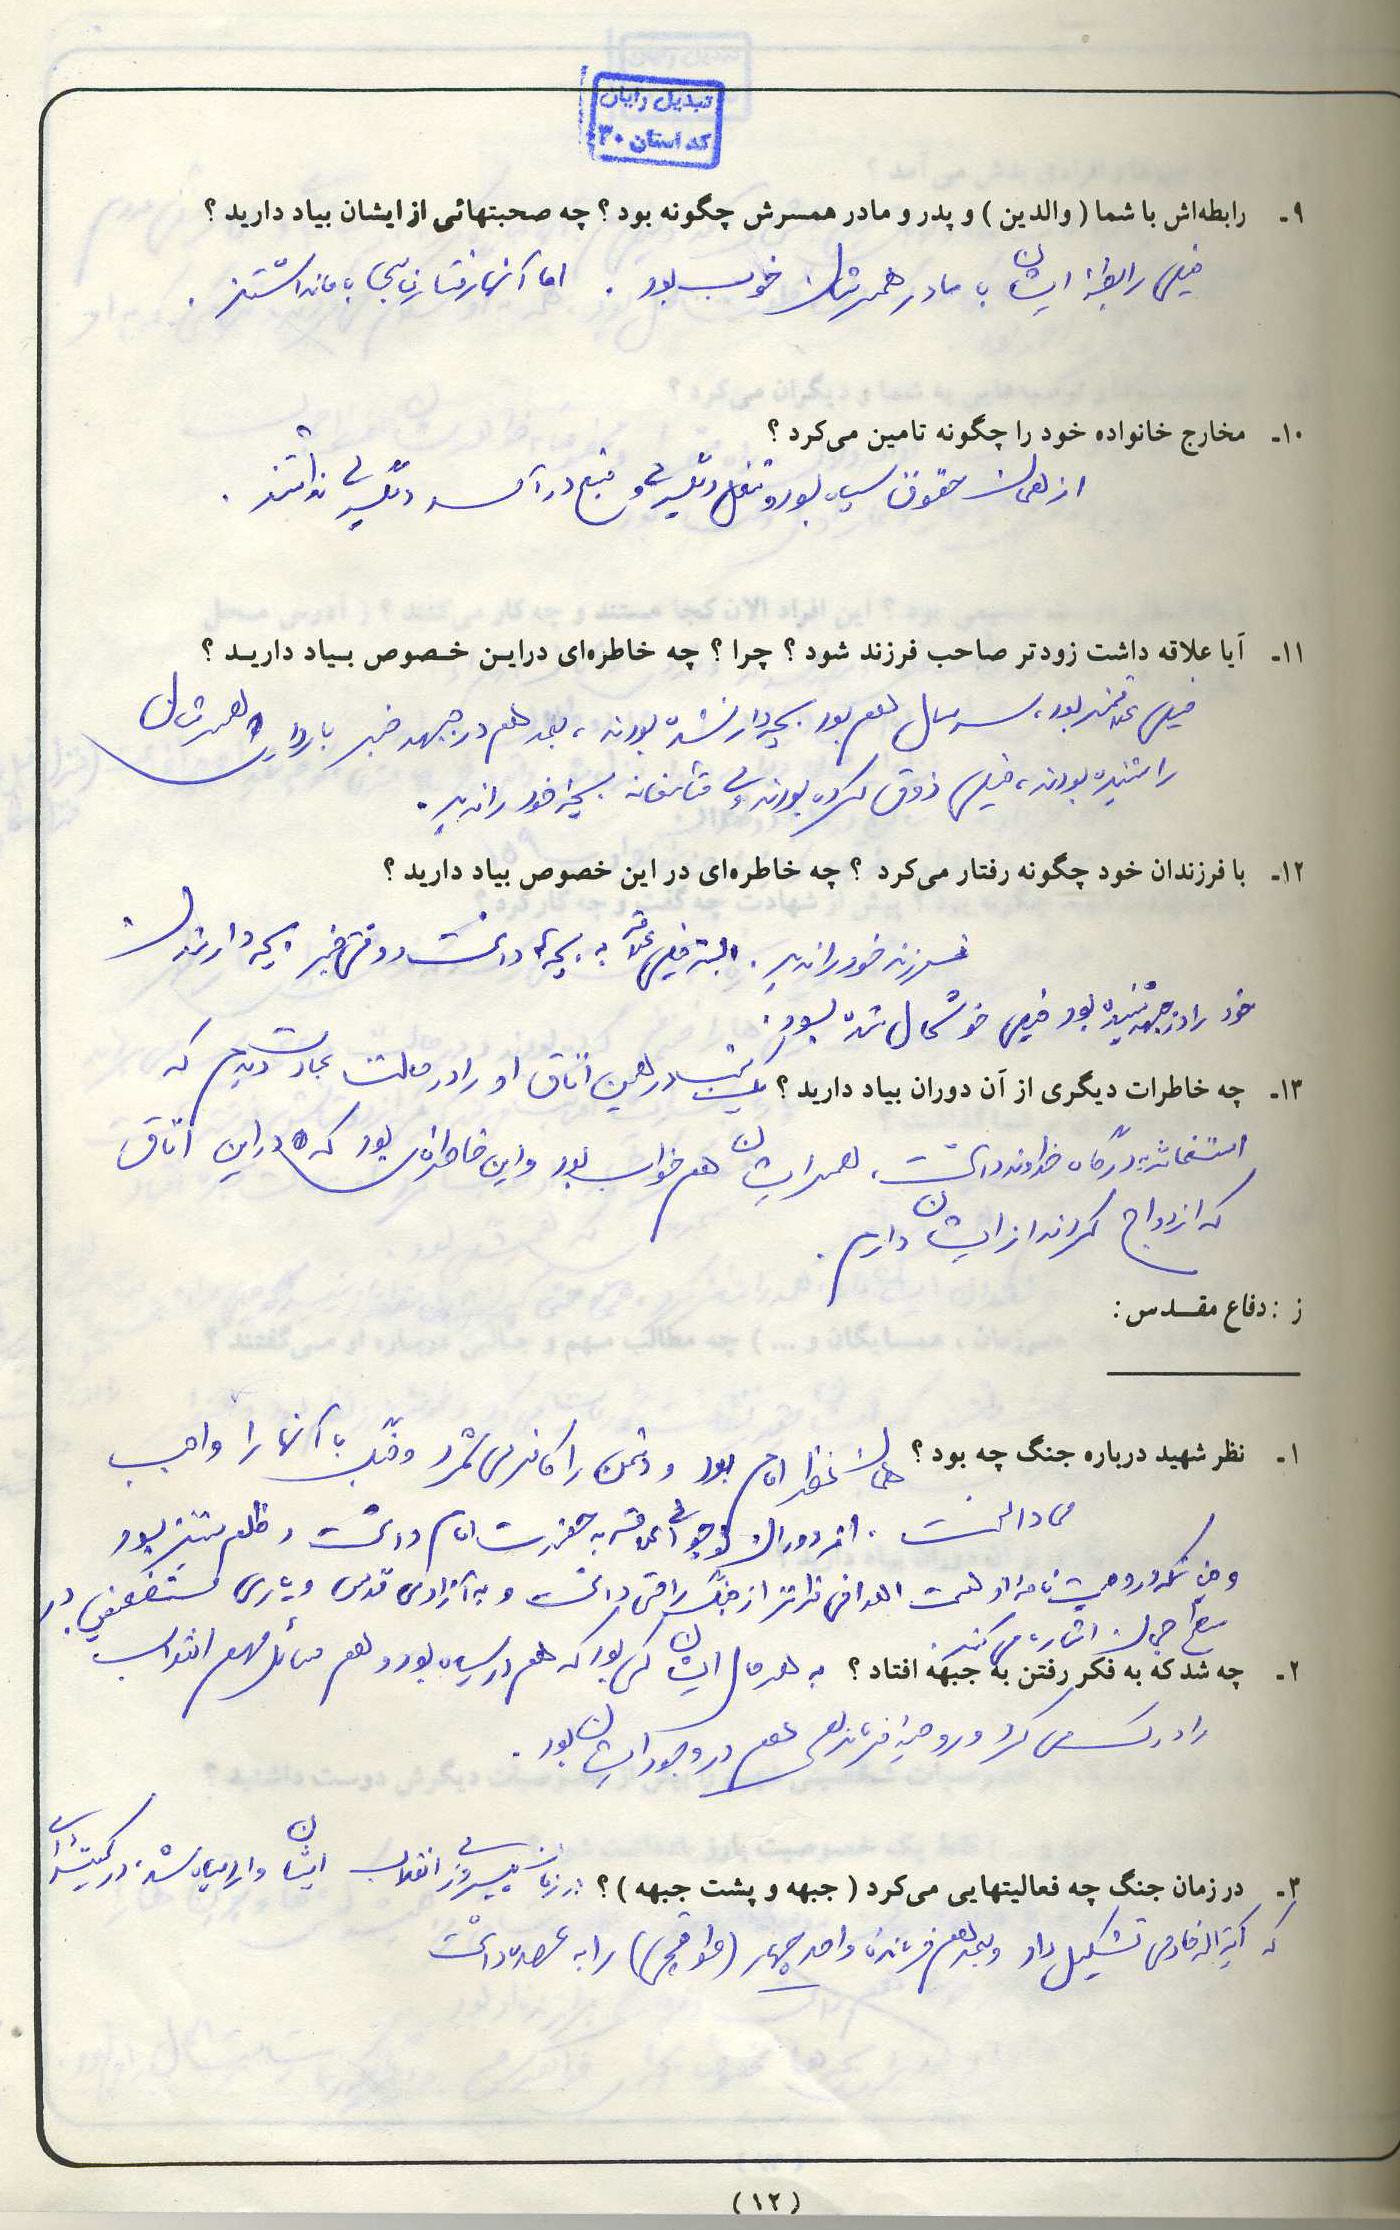 تبدیل رایان
کد استان ۳۰
۹- رابطه‌اش با شما ( والدین ) و پدر و مادر همسرش چگونه بود ؟ چه صحبتهائی از ایشان بیاد دارید ؟
خیلی رابطهٔ ایشان با مادر همسرشان خوب بود . اما آنها رفتار زیاد با ما نداشتند .
۱۰- مخارج خانواده خود را چگونه تامین می‌کرد ؟
از همان حقوق سپاه بود و شغل دیگری و منبع درآمد دیگری نداشتند .
۱۱- آیا علاقه داشت زودتر صاحب فرزند شود ؟ چرا ؟ چه خاطره‌ای دراین خصوص بیاد دارید ؟
خیلی علاقمند بود ، سه سال هم بود بچه‌دار نشده بودند ، بعد هم در جبهه خبر بارداری همسرشان
را شنیده بودند ، خیلی ذوق کرده بودند ولی متاسفانه بچهٔ خود را ندید .
۱۲- با فرزندان خود چگونه رفتار می‌کرد ؟ چه خاطره‌ای در این خصوص بیاد دارید ؟
فرزند خود را ندید . البته خیلی علاقه به بچه داشت و وقتی خبر بچه‌دار شدن
خود را در جبهه شنیده بود خیلی خوشحال شده بود .
۱۳- چه خاطرات دیگری از آن دوران بیاد دارید ؟ یک شب در همین اتاق او را در حالت عبادت دیدم که
استغاثه به درگاه خداوند داشت ، همسر ایشان هم خواب بود و این خاطره‌ای بود که در این اتاق
که ازدواج کردند از ایشان دارم .
ز : دفاع مقدس :
۱- نظر شهید درباره جنگ چه بود ؟ همان نظر امام بود و دشمن را کافر می‌شمرد و جنگ با آنها را واجب
می‌دانست . از دوران نوجوانی علاقه به حضرت امام داشت و ظلم ستیز بود
و چنانکه در وصیت نامه او هست اهدافی فراتر از جنگ را می‌دانست و به آزادی قدس و یاری مستضعفین در
سطح جهان اشاره می‌کند .
۲- چه شد که به فکر رفتن به جبهه افتاد ؟ به هر حال ایشان کسی بود که هم در سپاه بود و هم مسائل مهم انقلاب
را درک می‌کرد و روحیهٔ فرماندهی هم در وجود ایشان بود .
۳- در زمان جنگ چه فعالیتهایی می‌کرد ( جبهه و پشت جبهه ) ؟ در زمان پیروزی انقلاب ایشان وارد سپاه شد ، در کمیته‌ای
که آیة الله خادمی تشکیل داد و بعد هم فرمانده واحد چهار (خواجو) را به عهده داشت
(۱۲)